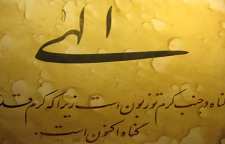 الهی
گناه در جنب کرم تو زبون است زیرا که کرم قد
گناه اکنون است.